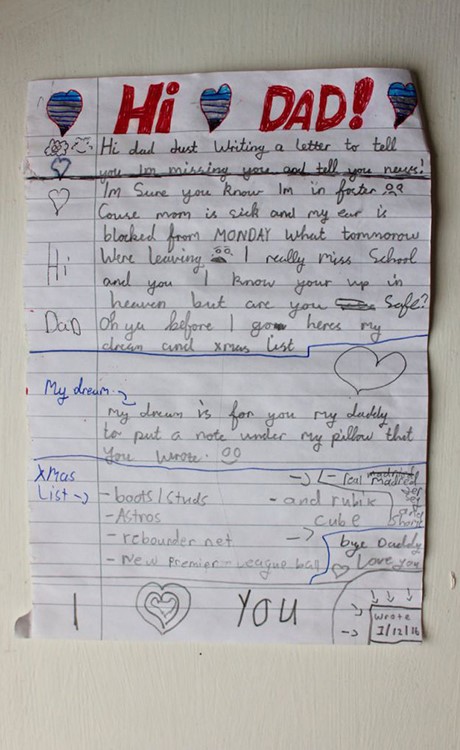 Hi DAD!
Hi dad Just Writing a letter to tell
you Im missing you and tell you news!
Im Sure you know Im in foster
Couse mom is sick and my ear is
blocked from MONDAY What tomnorow
Were leaving I really miss School
and you I know your up in
heaven but are you Safe?
Oh ya before I go heres my
dream and xmas list
Hi
Dad
My dream
my dream is for you my daddy
to put a note under my pillow that
you wrote.
Xmas
List
- boots/studs
- Astros
- rebounder net
- New Premier-League ball
- real madrid
- and rubix
cube
bye Daddy
Love you
I YOU
wrote
1/12/16